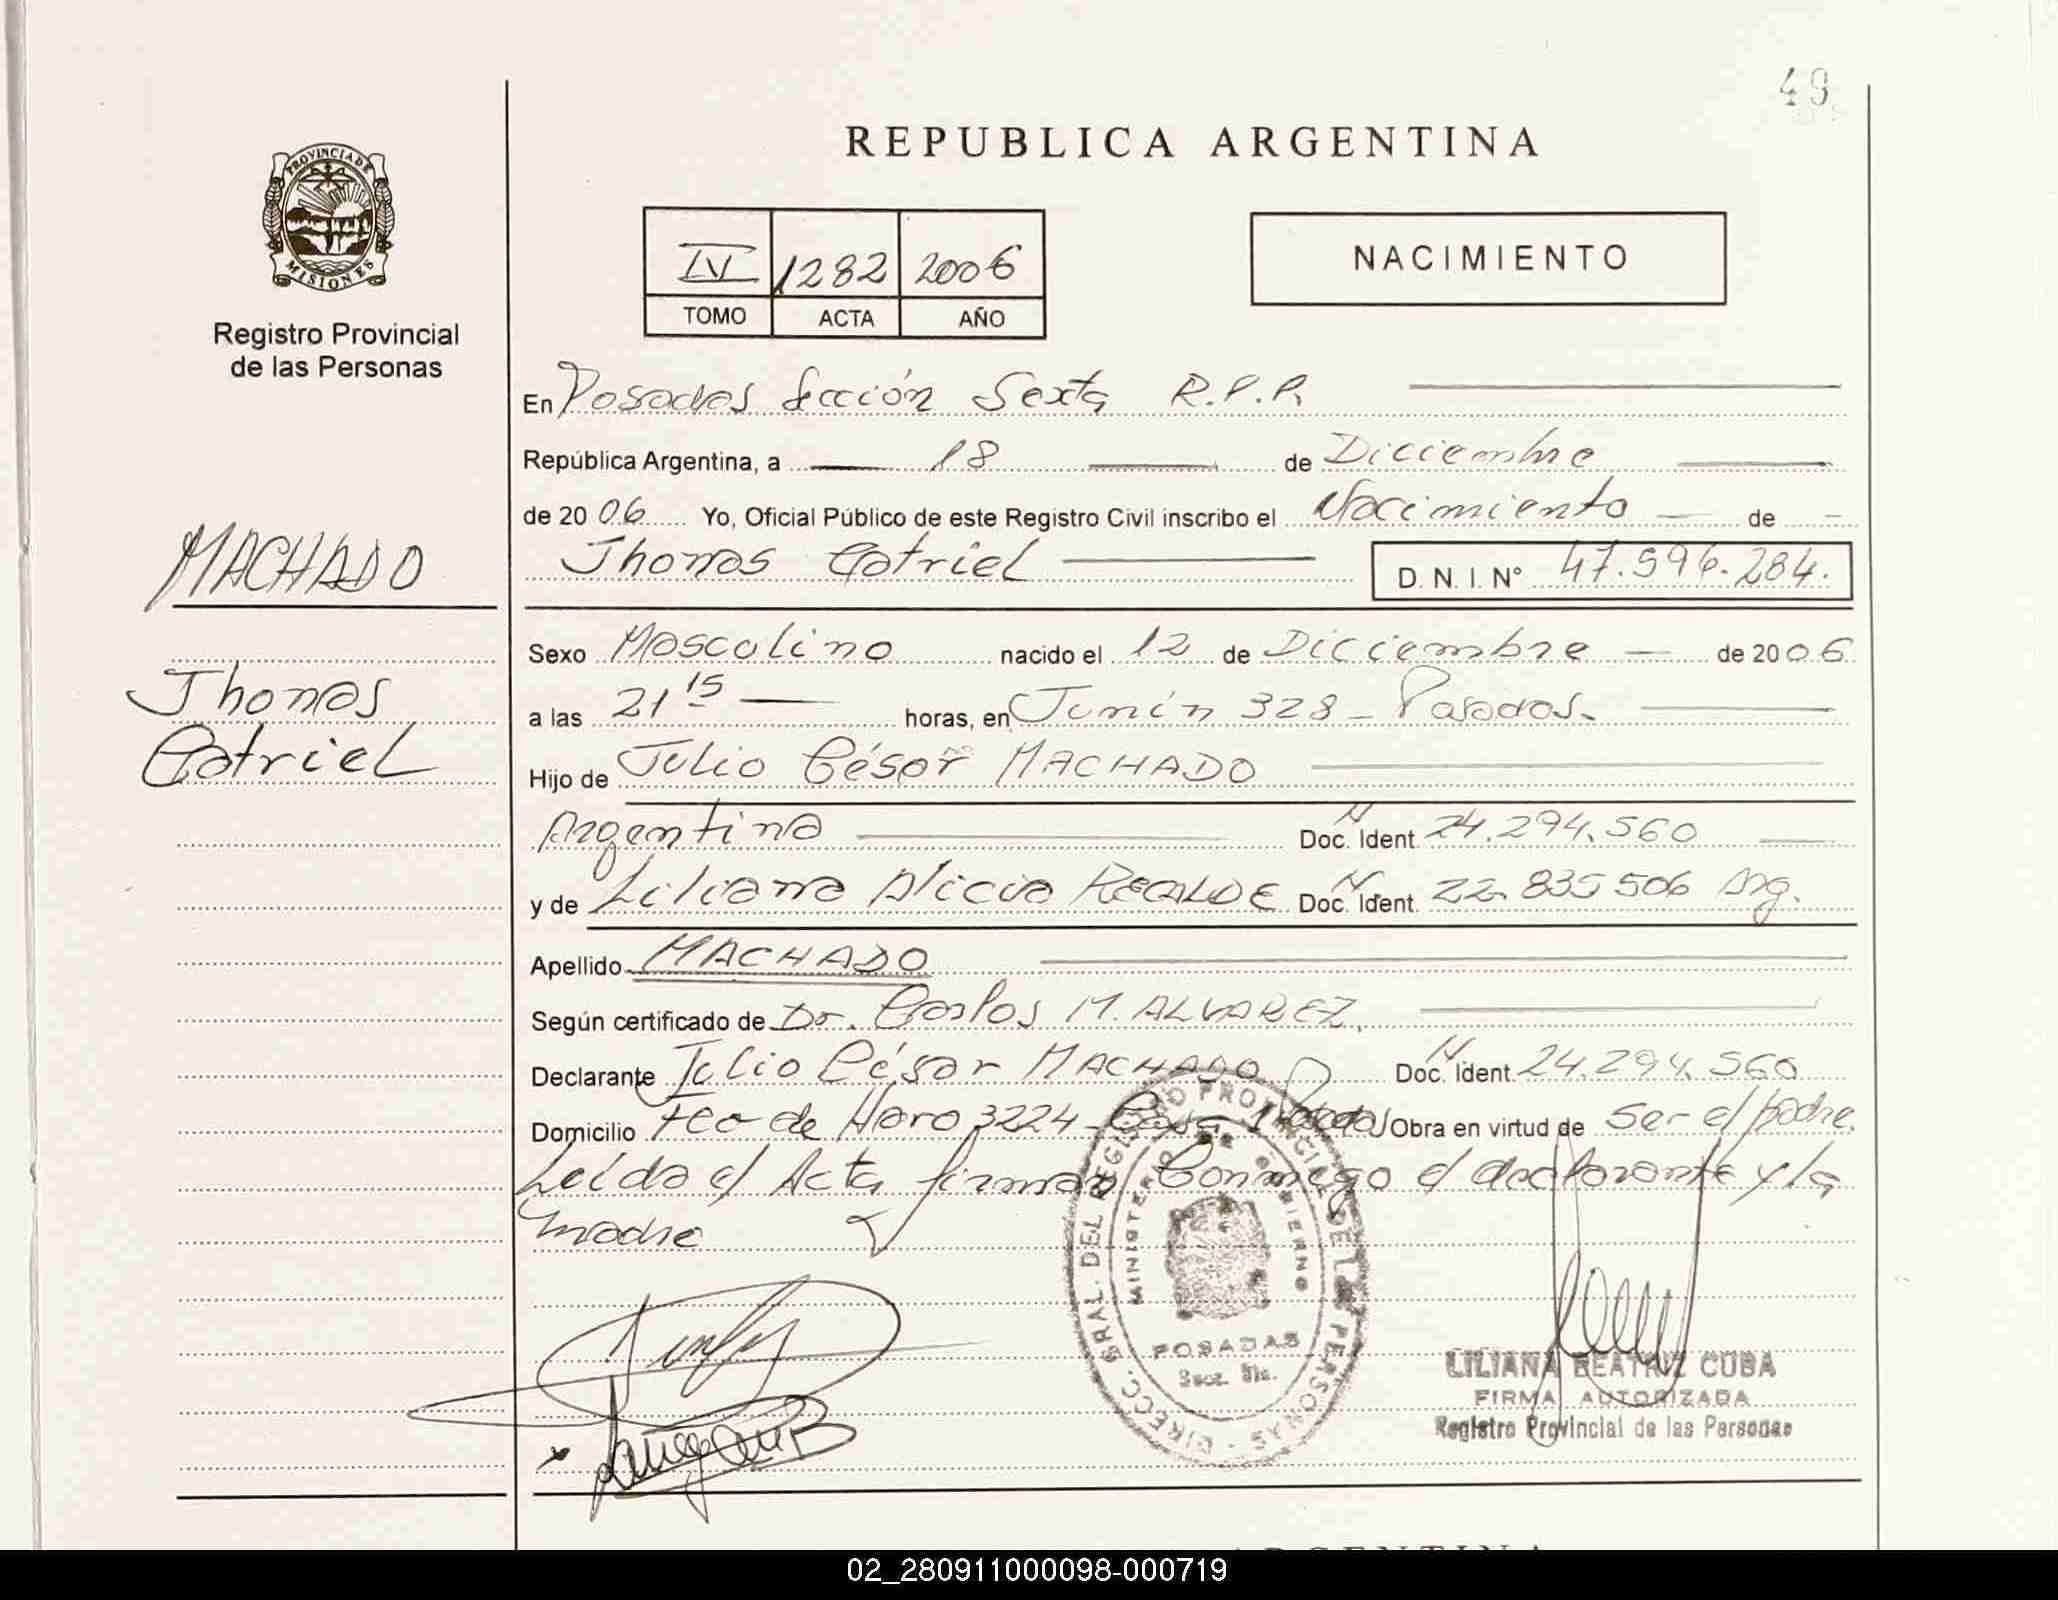 49
REPUBLICA ARGENTINA
PROVINCIA DE
MISIONES
Registro Provincial
de las Personas
IV 1282 2006
TOMO ACTA AÑO
NACIMIENTO
En Posadas Sección Sexta R.P.P.
República Argentina, a 18 de Diciembre
de 2006 Yo, Oficial Público de este Registro Civil inscribo el Nacimiento de
Jhonas Catriel D.N.I. Nº 47.596.284.
MACHADO
Jhonas
Catriel
Sexo Masculino nacido el 12 de Diciembre de 2006
a las 21 15 horas, en Junín 328 - Posadas.
Hijo de Julio César MACHADO
Argentina Doc. Ident. 24.294.560
y de Liliana Alicia RECALDE Doc. Ident. 22.835506 Arg.
Apellido MACHADO
Según certificado de Dr. Carlos M. ALVAREZ.
Declarante Julio César MACHADO Doc. Ident. 24.294.560
Domicilio Fco de Haro 3224 - Obra en virtud de Ser el padre.
Leída el Acta firman Conmigo el declarante y la
madre
DIRECC. GRAL. DEL REGISTRO PROVINCIAL DE LAS PERSONAS
MINISTERIO DE GOBIERNO
POSADAS
LILIANA BEATRIZ CUBA
FIRMA AUTORIZADA
Registro Provincial de las Personas
ARGENTINA
02_280911000098-000719